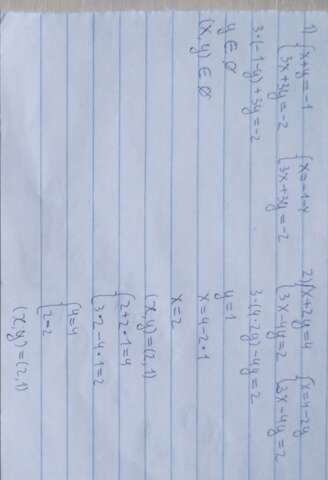 1) { x+y=-1 { x=-1-y
{ 3x+3y=-2 { 3x+3y=-2
3·(-1-y)+3y=-2
y∈∅
(x,y)∈∅
2) { x+2y=4 { x=4-2y
{ 3x-4y=2 { 3x-4y=2
3·(4-2y)-4y=2
y=1
x=4-2·1
x=2
(x,y)=(2,1)
{ 2+2·1=4
{ 3·2-4·1=2
{ 4=4
{ 2=2
(x,y)=(2,1)